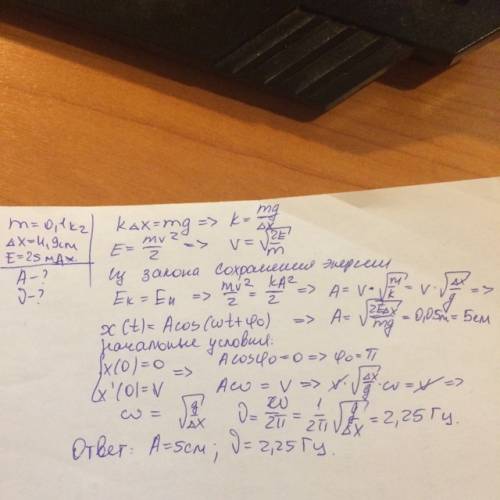 m=0,1кг
Δx=4,9см
E=25мДж
A-?
ν-?
kΔx=mg => k=mg/Δx
E=mv²/2 => v=√(2E/m)
Из закона сохранения энергии
Eк=Eп => mv²/2=kA²/2 => A=v·√(m/k)=v·√(Δx/g) =>
=> A=√(2EΔx/mg)=0,05m=5см
x(t)=Acos(ωt+φ₀)
начальные условия:
{x(0)=0
x'(0)=V
=> Acosφ₀=0 => φ₀=π
Aω=v => v·√(Δx/g)·ω=v =>
ω=√(g/Δx) ν=ω/2π=1/2π√(g/Δx)=2,25Гц
Ответ: A=5см; ν=2,25Гц.